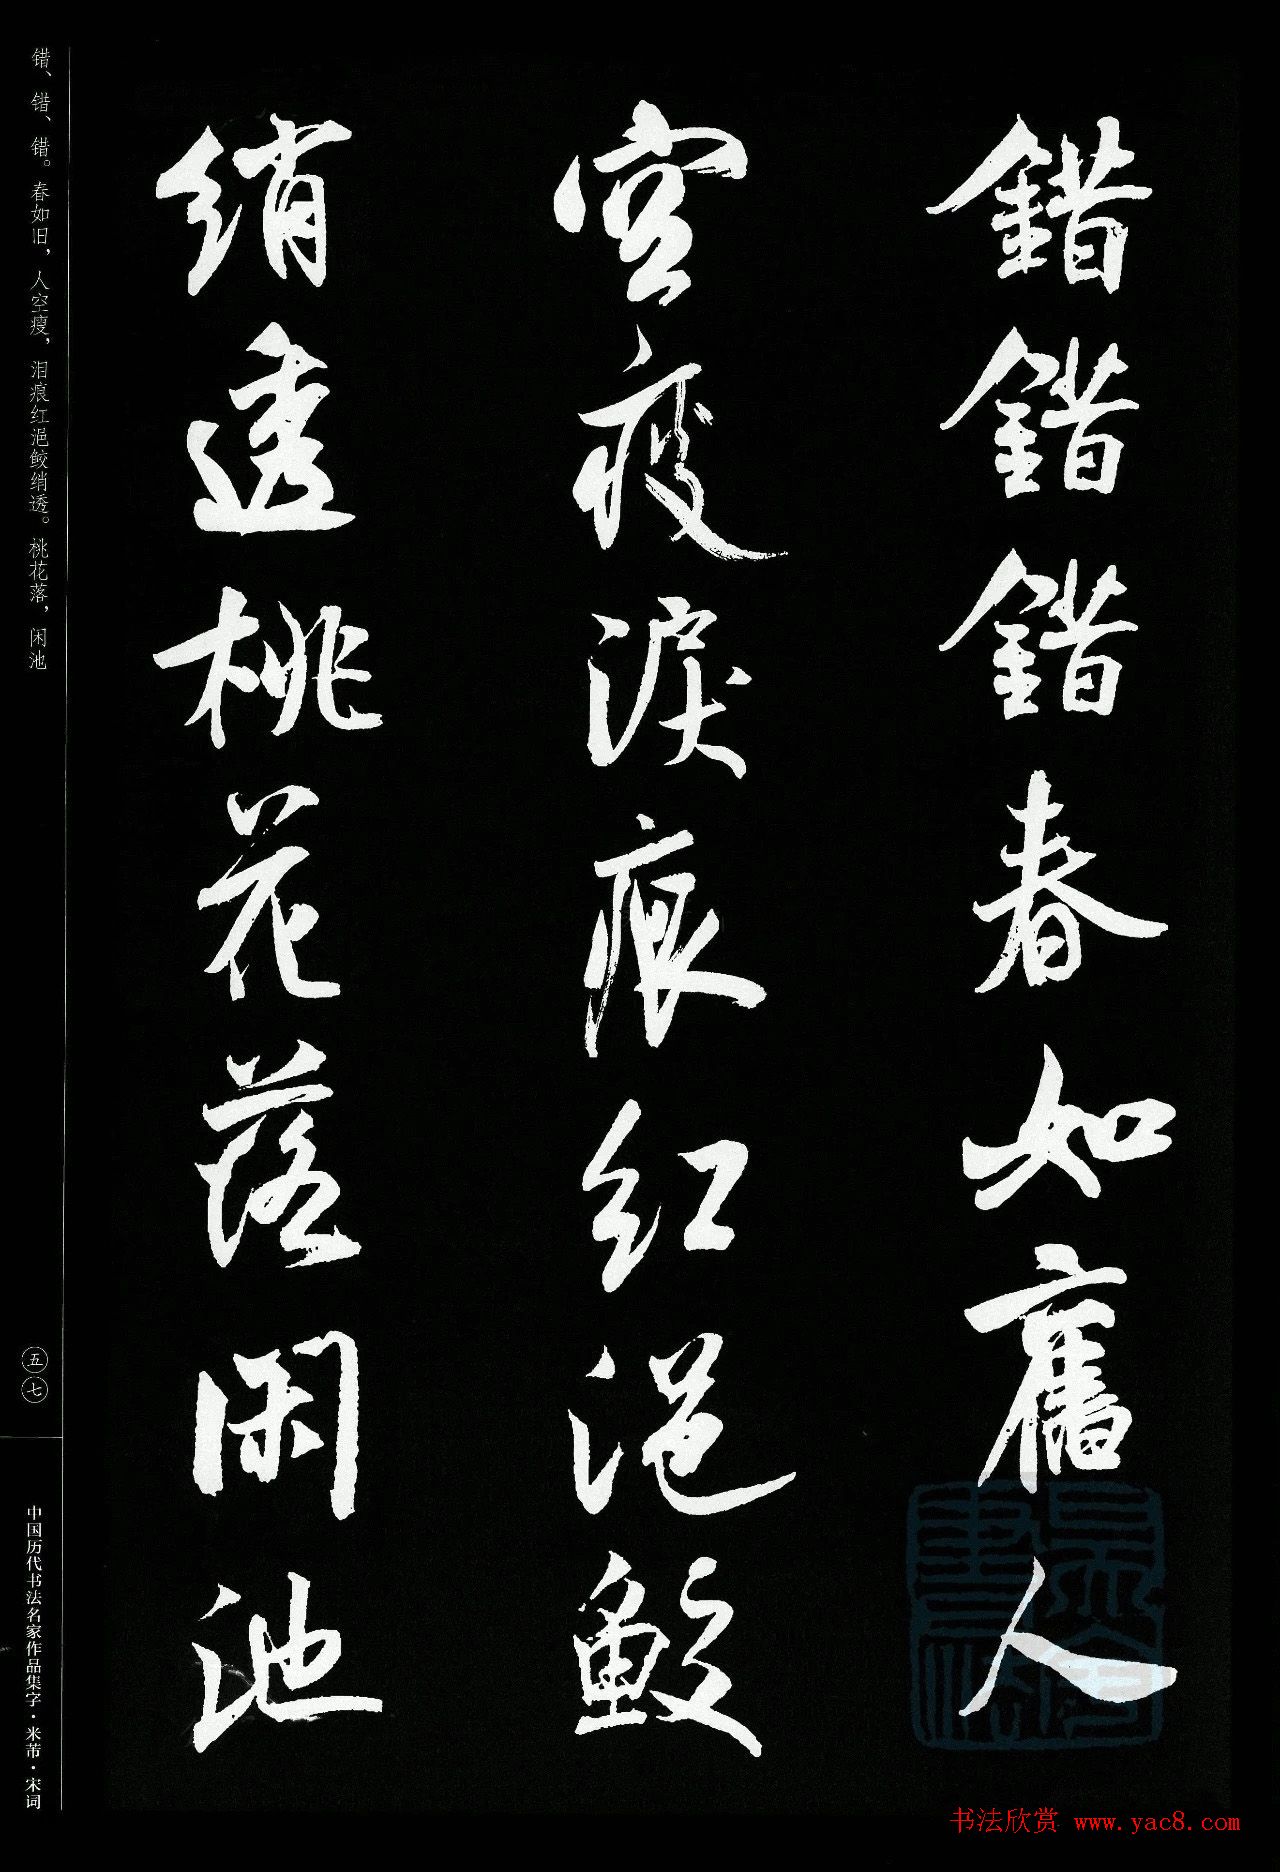 錯錯錯春如舊人
空瘦淚痕红浥鮫
綃透桃花落閑池
错、错、错。春如旧，人空瘦，泪痕红浥鲛绡透。桃花落，闲池
五七
中国历代书法名家作品集字·米芾·宋词
书法欣赏 www.yac8.com